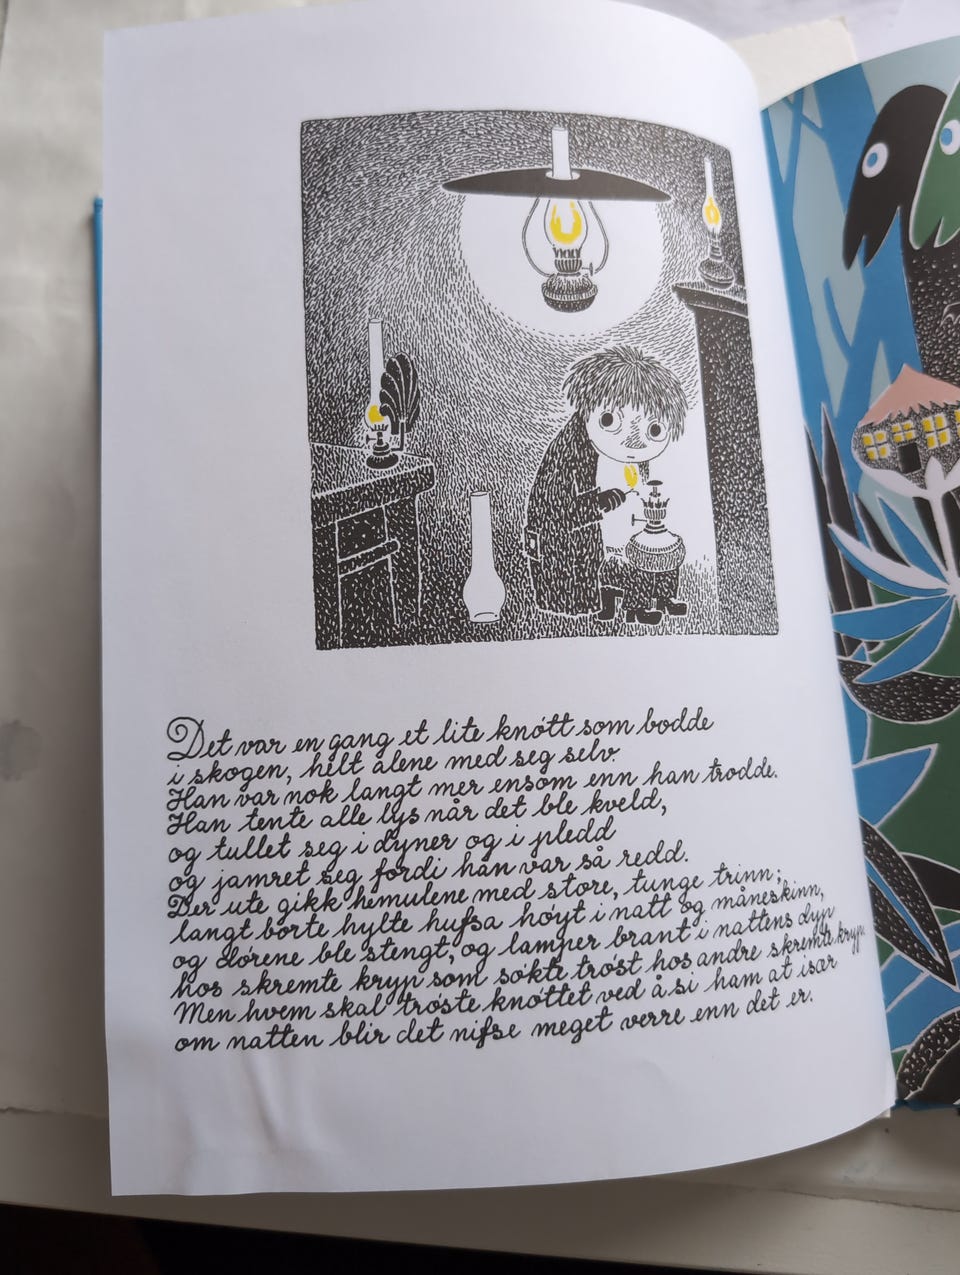 Det var en gang et lite knøtt som bodde
i skogen, helt alene med seg selv.
Han var nok langt mer ensom enn han trodde.
Han tente alle lys når det ble kveld,
og tullet seg i dyner og i pledd
og jamret seg fordi han var så redd.
Der ute gikk hemulene med store, tunge trinn;
langt borte hylte hufsa høyt i natt og måneskinn,
og dørene ble stengt, og lamper brant i nattens dyp
hos skremte kryp som søkte trøst hos andre skremte kryp.
Men hvem skal trøste knøttet ved å si ham at især
om natten blir det nifse meget verre enn det er.